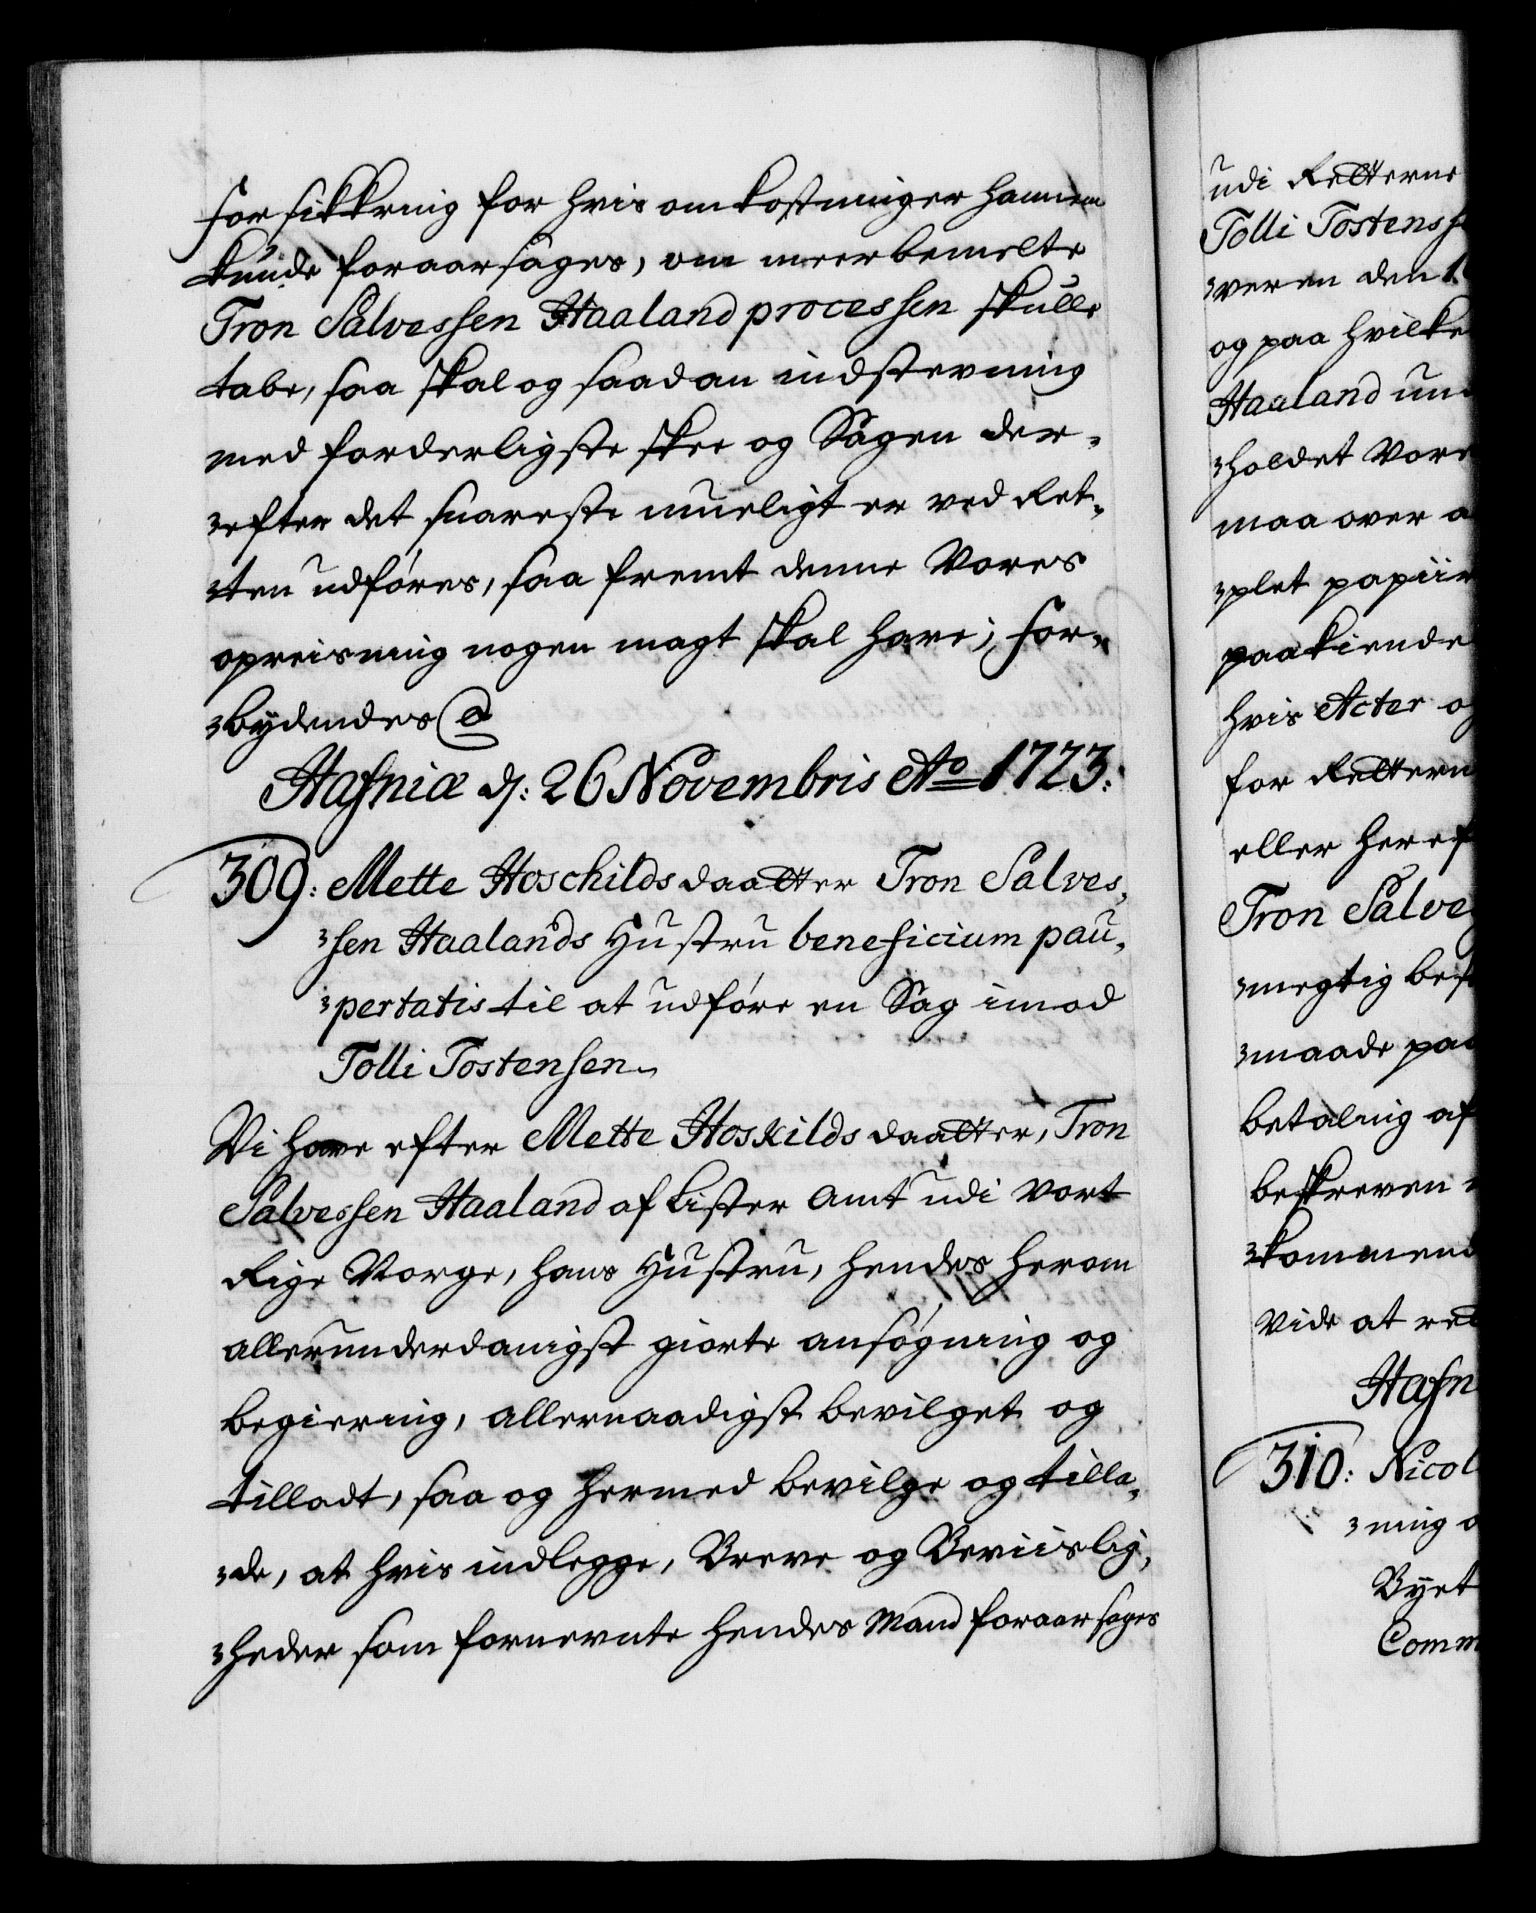 forsikkring for hvis omkostninger hannem
kunde foraarsages, om meerbemelte
Tron Salvessen Haaland processen skulle
tabe, saa skal og saadan indstevning
med forderligste skee og Sagen der-
efter det snareste mueligt er ved Ret-
ten udføres, saa fremt denne Vores
opreisning nogen magt skal have; For-
bydendes
Hafniæ d: 26 Novembris Ao 1723:
309: Mette Hoschilds daatter Tron Salves-
sen Haalands Hustru beneficium pau-
pertatis til at udføre en Sag imod
Tolli Tostensen
Vi have efter Mette Hoskilds daatter, Tron
Salvessen Haaland af Lister Amt udi Vort
Rige Norge, hans Hustru, hendes herom
allerunderdanigst giorte ansøgning og
begiering, allernaadigst bevilget og
tilladt, saa og hermed bevilge og tilla-
de, at hvis indlegge, Breve og Beviislig-
heder som fornevnte hendes Mand foraarsages
udi Retterne
Tolli Tostens
veren den
og paa hvilke
Haaland
holdet Vor
maa over
plet papiir
paakiende
hvis Acter
for Rettern
eller heref
Tron Salve
megtig
maade paa
betaling af
beskreven
kommen
Vide at
Hafn
310: Nicol
ning
Byet
Comm